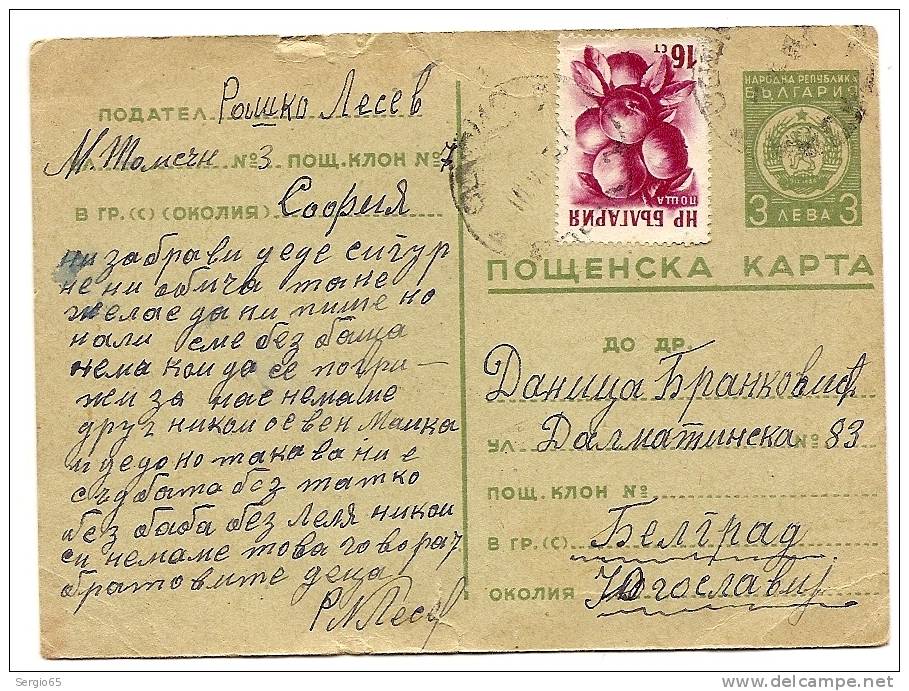 ПОДАТЕЛ Рашко Лесев
№ 3 ПОЩ. КЛОН № 7
В ГР. (С) (ОКОЛИЯ) София
ни забрави деде сигур
не ни обича та не
желае да ни пише но
нали сме без баща
нема кои да се погри–
жи за нас немаме
друг никои освен Маика
и дедо но такава ни е
съдбата без татко
без баба без Леля никои
си немаме това говорат
братовите деца
Р Лесев
16 СТ
ПОЩА
НР БЪЛГАРИЯ
НАРОДНА РЕПУБЛИКА
БЪЛГАРИЯ
3 ЛЕВА 3
ПОЩЕНСКА КАРТА
ДО ДР.
Даница Бранковић
УЛ. Далматинска № 83
ПОЩ. КЛОН №
В ГР. (С) Белград
ОКОЛИЯ Югославиј
Sergio65
delcampe.net